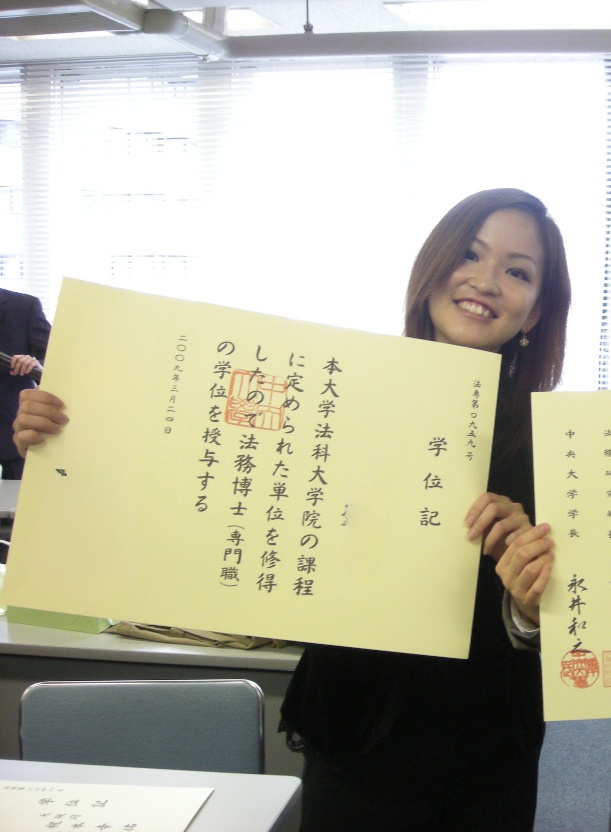 法専第〇九五九号
学位記
本大学法科大学院の課程
に定められた単位を修得
したので法務博士(専門職)
の学位を授与する
二〇〇九年三月二四日
中央大学学長
永井和之